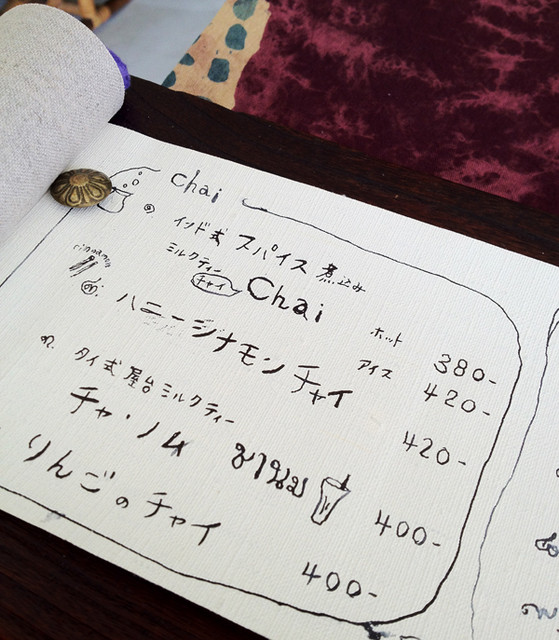 Chai
インド式 スパイス 煮込み
ミルクティー
チャイ Chai ホット 380-
アイス 420-
cinnamon
ハニーシナモンチャイ 420-
タイ式 屋台 ミルクティー
チャ・ノム ชานม 400-
りんごのチャイ 400-